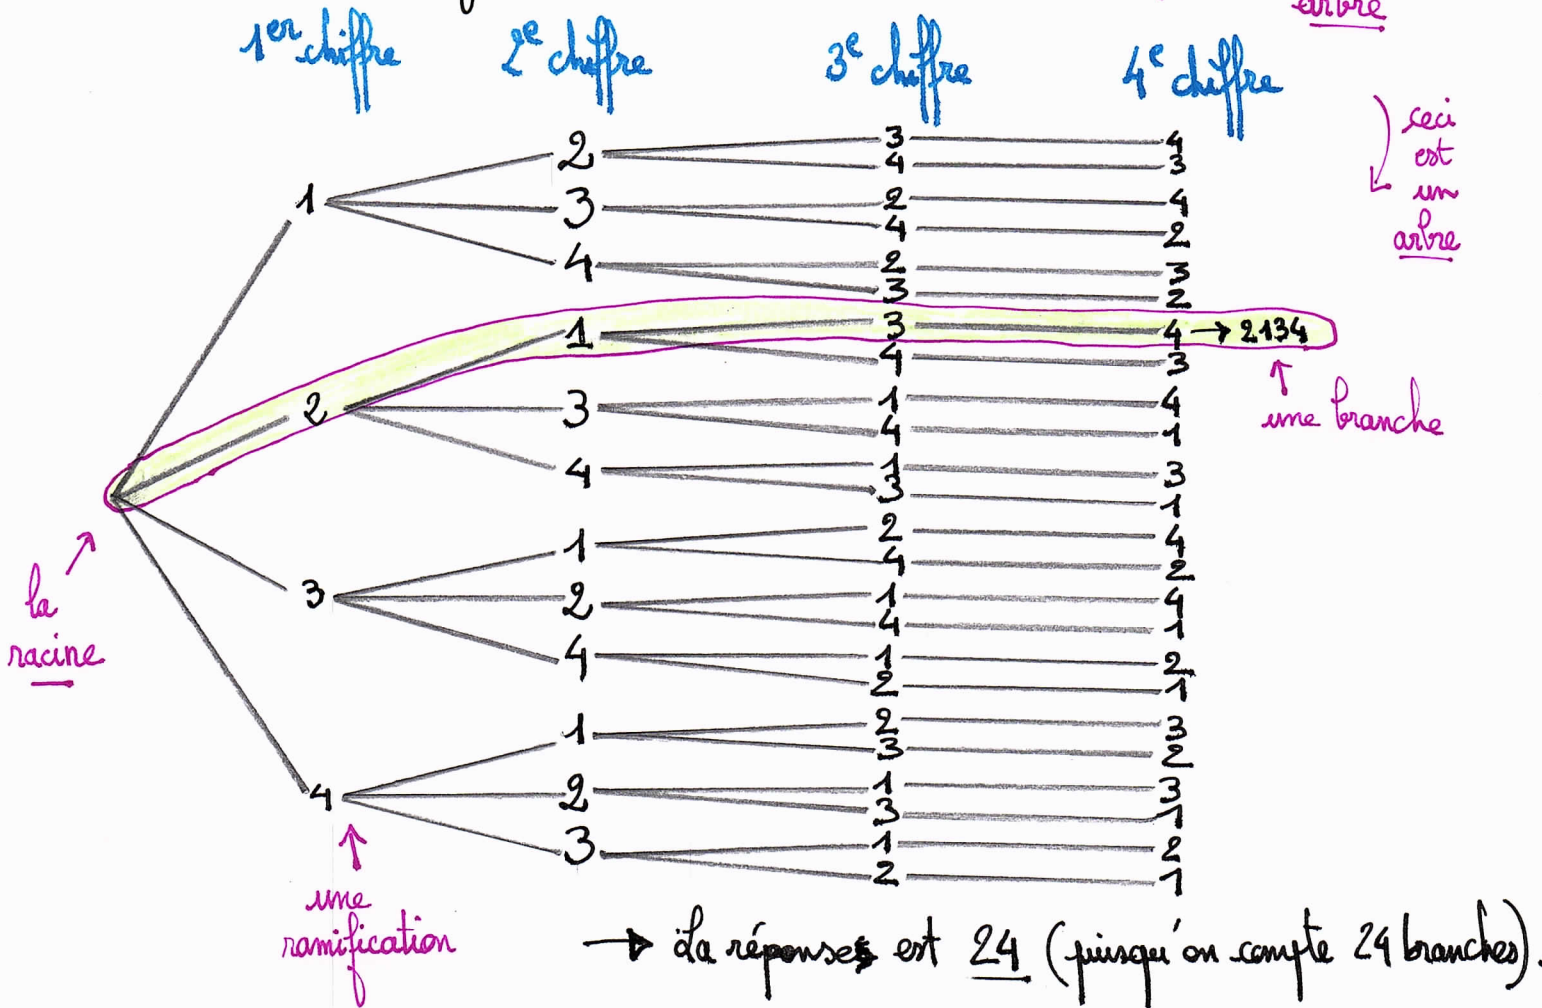 arbre
1er chiffre 2e chiffre 3e chiffre 4e chiffre
ceci
est
un
arbre
1
2
3
4
2
3
4
1
3
4
1
2
4
1
2
3
3
4
2
4
2
3
3
4
1
4
1
3
2
4
1
4
1
2
2
3
1
3
1
2
4
3
4
2
3
2
4 → 2134
3
4
1
3
1
4
2
4
1
2
1
3
2
3
1
2
1
une branche
la
racine
une
ramification
→ La réponse est 24 (puisqu'on compte 24 branches).